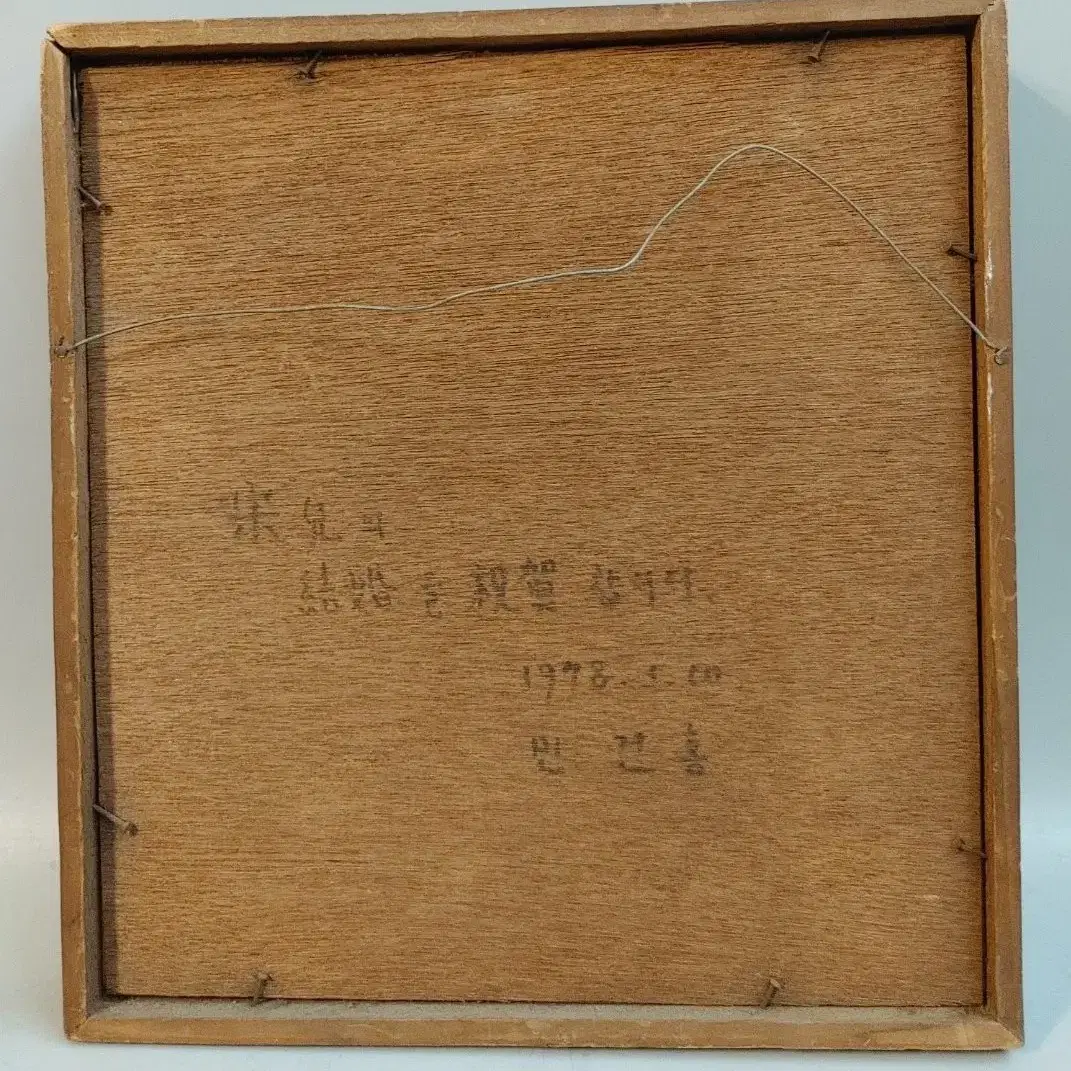 宋兄의
結婚을 祝賀합니다.
1978.
민 건 홍